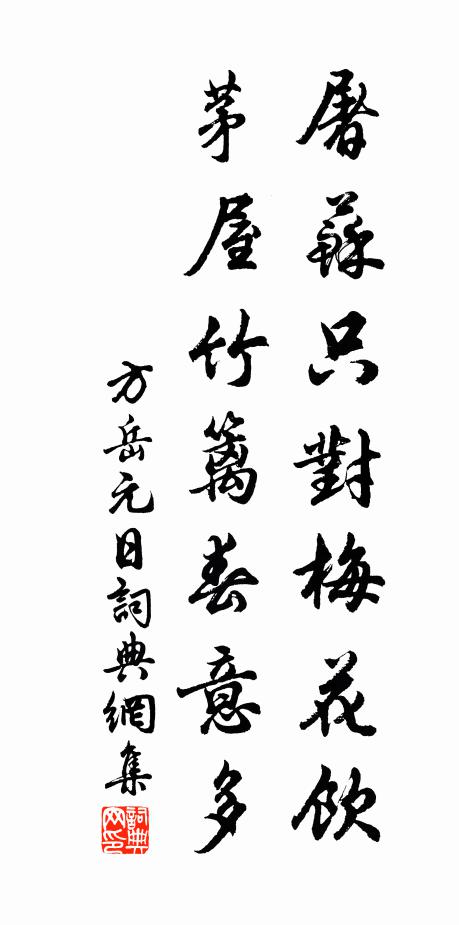 屠蘇只對梅花飲
茅屋竹籬春意多
方岳元日詞典網集
詞典网印